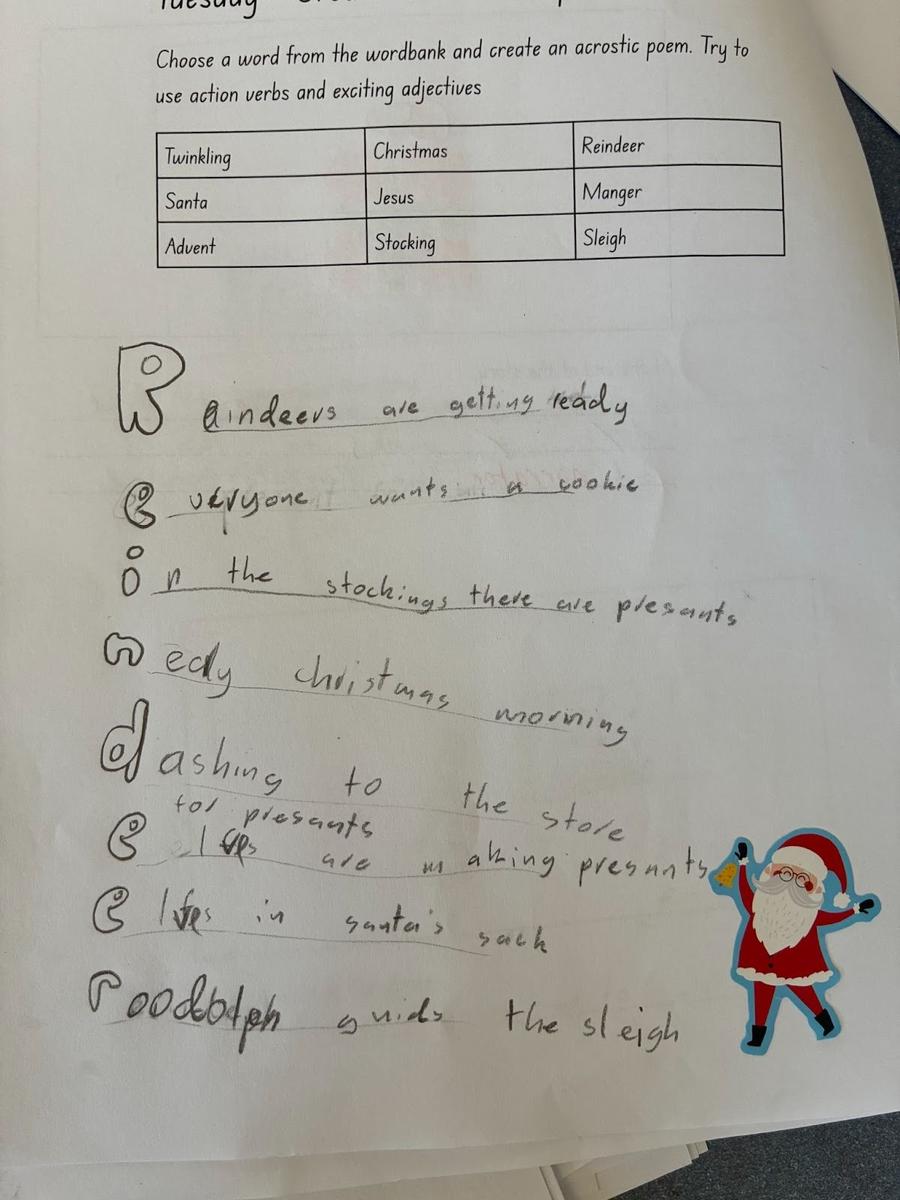 Tuesday
Choose a word from the wordbank and create an acrostic poem. Try to
use action verbs and exciting adjectives
Twinkling Christmas Reindeer
Santa Jesus Manger
Advent Stocking Sleigh
Raindeers are getting ready
everyone wants a cookie
in the stockings there are presants
nedy christmas morning
dashing to the store
for presants
elfes are making presants
elfes in santa's sack
roodolph guids the sleigh